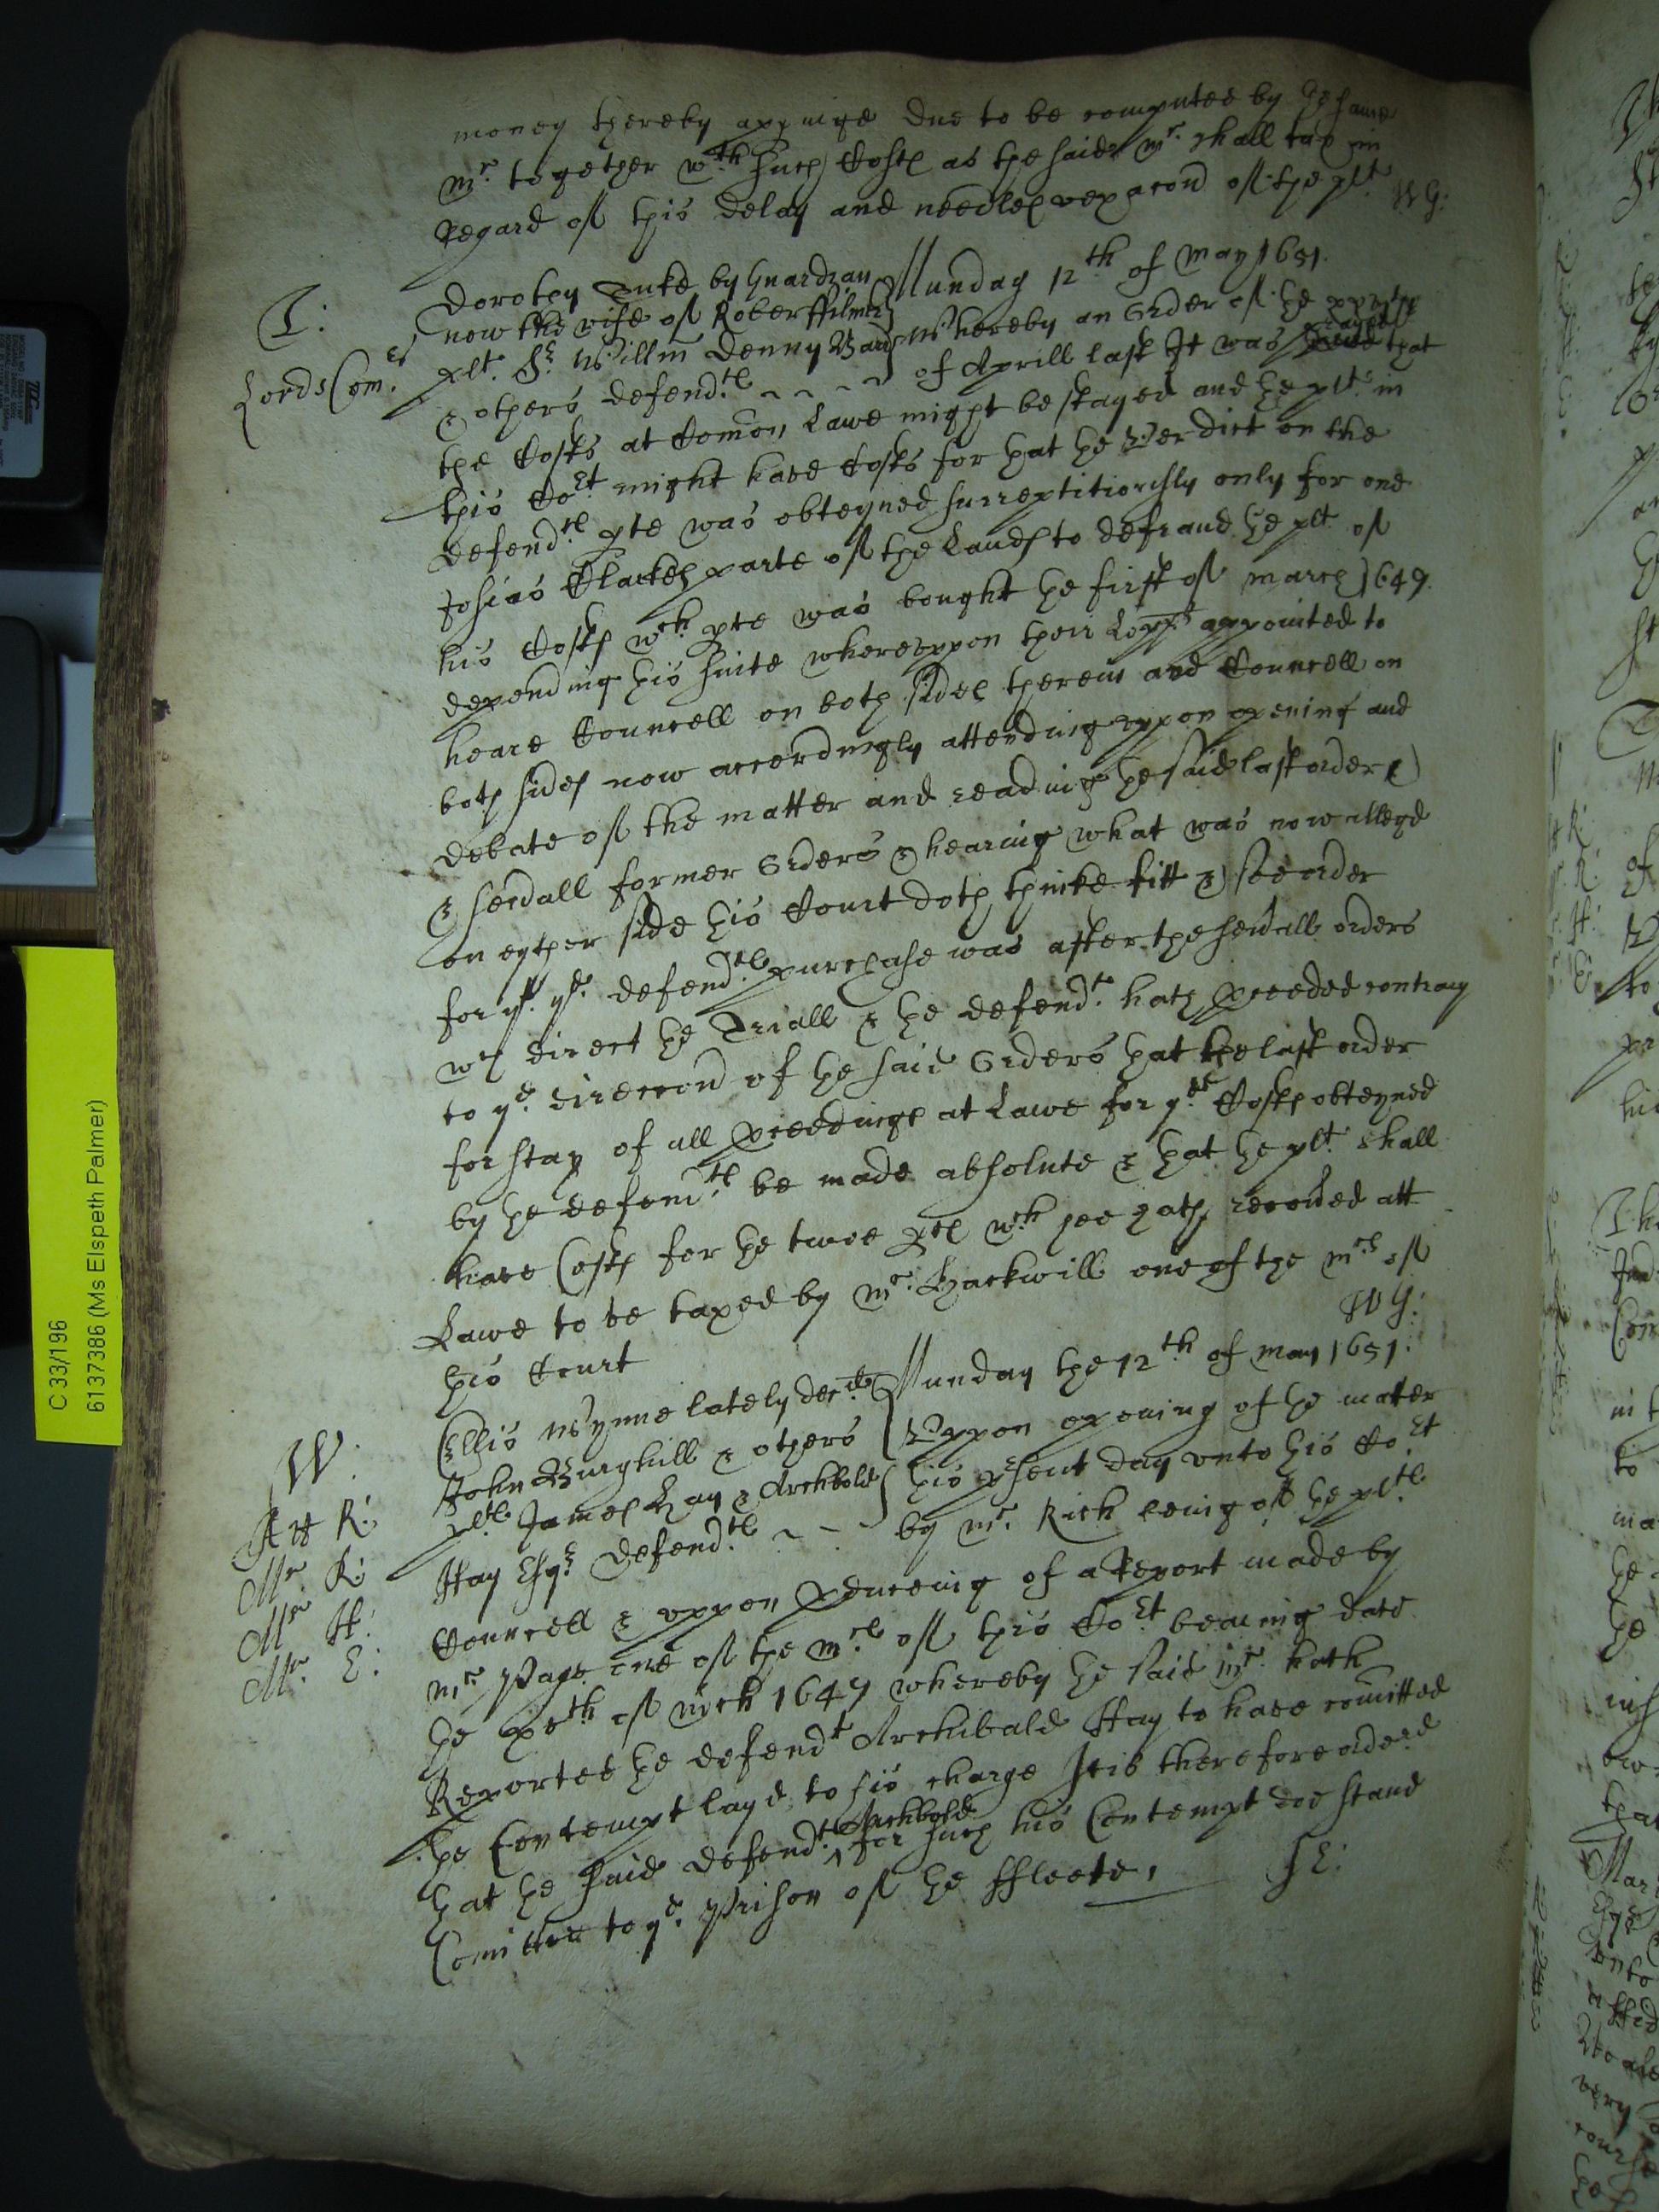 money thereby appeinge due to be computed by the same
Mr. together wth. such Costs as the said Mr. shall tax in
regard of this delay and needles vexacon of the plt. W G:
T:
Lords Com.rs
Dorothy Tuke by Guardian
now the wife of Robert ffilmer
plt. Sr. Willm Denny Bart
& others defend.ts
Munday 12th of May 1651.
Whereby an Order of the
of Aprill last It was prayed that
the Costs at Comon Lawe might be stayed and the plt. in
this Cort. might have Costs for that the Verdict on the
defend.ts pte was obteyned surreptitiously only for one
Josias Clarkes parte of the Lands to defraud the plt. of
his Costs wch. pte was bought the first of March 1649.
depending this suite whereuppon their Lopps appointed to
heare Councell on both sides therein and Councell on
both sides now accordingly attending uppon opening and
debate of the matter and reading the said last order &
& seuall former Orders & hearing what was now alleged
on eyther side this Court doth thinke fitt & soe order
for yt. ye. defend.ts purchase was after the seuall orders
wch direct the Triall & the defend.t hath pceeded contrary
to ye. direccon of the said Orders that the last order
for stay of all pceedings at Lawe for ye. Costs obteyned
by the defend.ts be made absolute & that the plt. shall
have Costs for the twoe pts wch shee hath recoued att
Lawe to be taxed by Mr. Hackwill one of the Mrs of
this Court
W G:
W.
Att R:
Mr R:
Mr H:
Mr. E:
Ellis Wynne lately
John Burghill & others
plts. James Hay & Archbold
Hay Esqr. Defend.ts
Munday the 12th of May 1651.
Uppon opening of the matter
this psent day unto this Cort.
by Mr. Rich being of the plts.
Councell & uppon pduceing of a Report made by
Mr Page one of the Mrs of this Cort. beareing date
the xxth of Mch 1649 whereby the said Mr. hath
Reported the defendt Archibald Hay to have comitted
the Contempt layd to his charge It is therefore ordered
that the said defend.t Archbold for such his Contempt doe stand
Comitted to ye. Prison of the ffleete.
J E:
C 33/196
61137386 (Ms Elspeth Palmer)